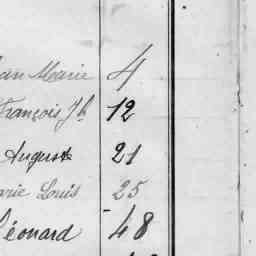 an Marie 4
François Jh 12
August 21
arie Louis 25
Léonard 48